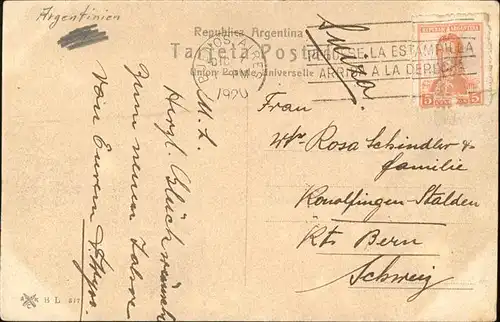 Argentinien
Republica Argentina
Tarjeta Postal
Union Postale Universelle
Suiza
PONGASE LA ESTAMPILLA
ARRIBA A LA DERECHA
1920
REPUBLICA ARGENTINA
5 5
M. L.
Herzl. Glückwünsche
zum neuen Jahre
von Eurem
Frau
Wwe Rosa Schindler &
Familie
Konolfingen-Stalden
Kt. Bern
Schweiz
B L